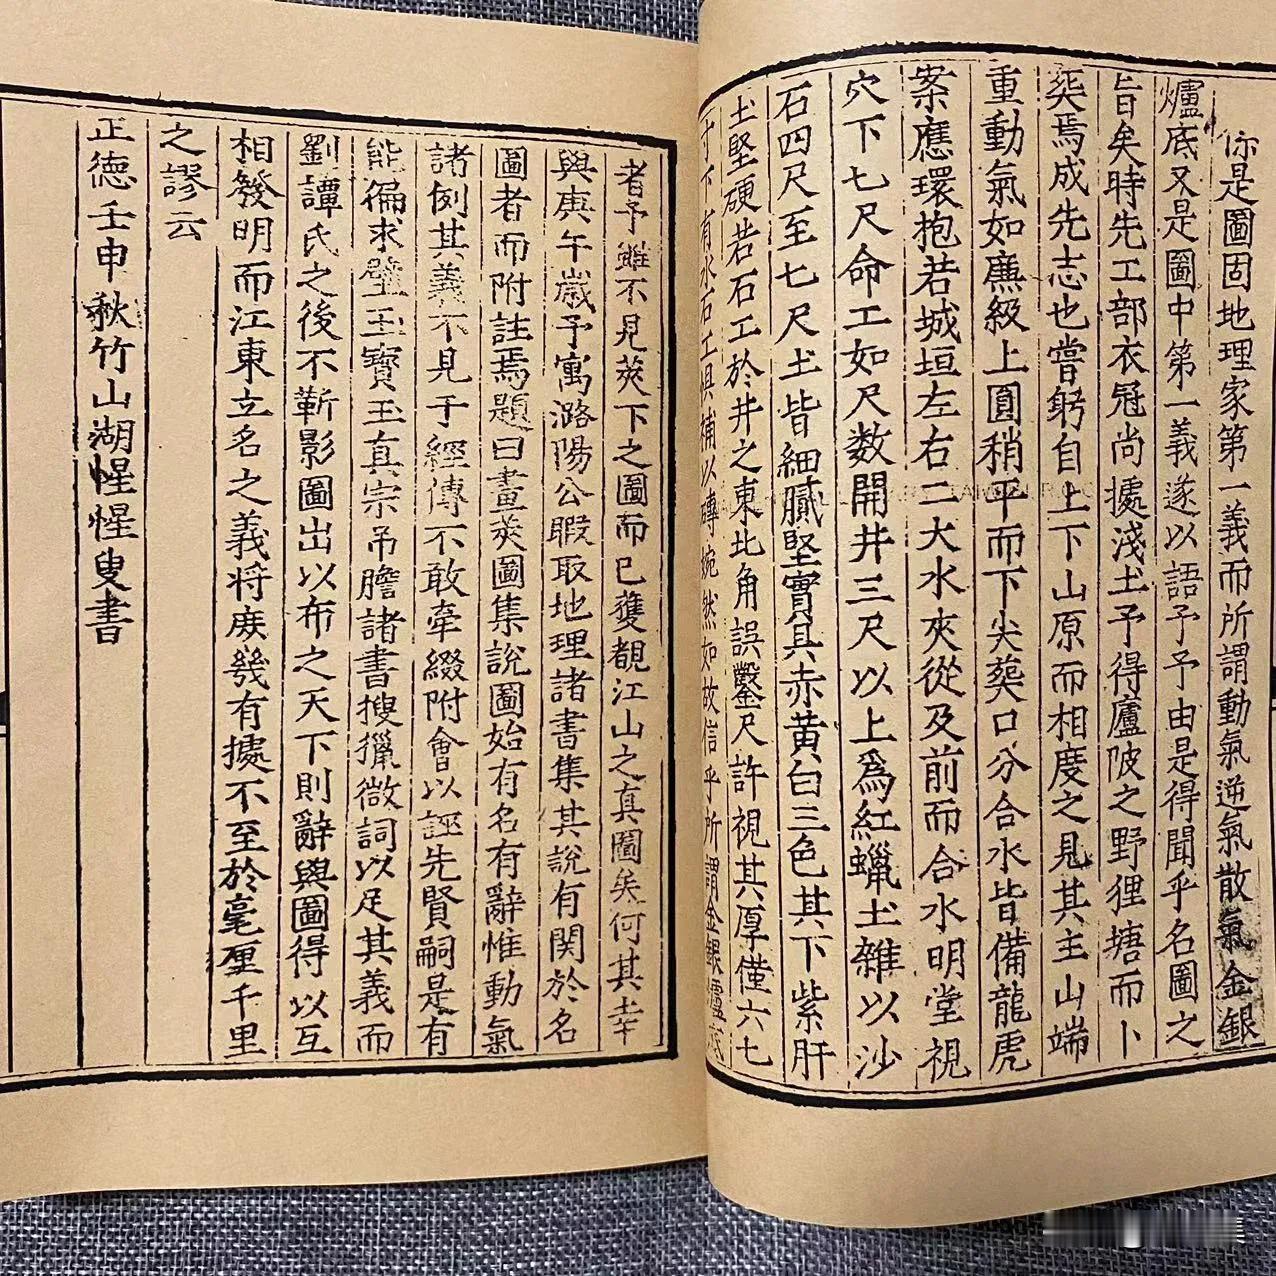 你是圖固地理家第一義而所謂動氣逆氣散氣金銀
爐底又是圖中第一義遂以語予予由是得聞乎名圖之
旨矣時先工部衣冠尚攄淺土予得廬陂之野狸塘而卜
葬焉成先志也嘗躬自上下山原而相度之見其主山端
重動氣如廉級上圓稍平而下尖葬口分合水皆備龍虎
案應環抱若城垣左右二大水夾從及前而合水明堂視
穴下七尺命工如尺数開井三尺以上爲紅蠟土雜以沙
石四尺至七尺土皆細膩堅實其赤黄白三色其下紫肝
土堅硬若石工於井之東北角誤鑿尺許視其厚僅六七
寸下有水石工俱補以磚婉然如故信乎所謂金銀爐底
者予雖不見葬下之圖而已獲覩江山之真圖矣何其幸
與庚午歲予寓潞陽公暇取地理諸書集其說有関於名
圖者而附註焉題曰畫葬圖集說圖始有名有辭惟動氣
諸例其義不見于經傳不敢牽綴附會以誣先賢嗣是有
能徧求壁玉寶玉真宗吊膽諸書搜獵微詞以足其義而
劉譚氏之後不靳影圖出以布之天下則辭與圖得以互
相發明而江東立名之義将庶幾有據不至於毫厘千里
之謬云
正德壬申秋竹山湖惺惺叟書